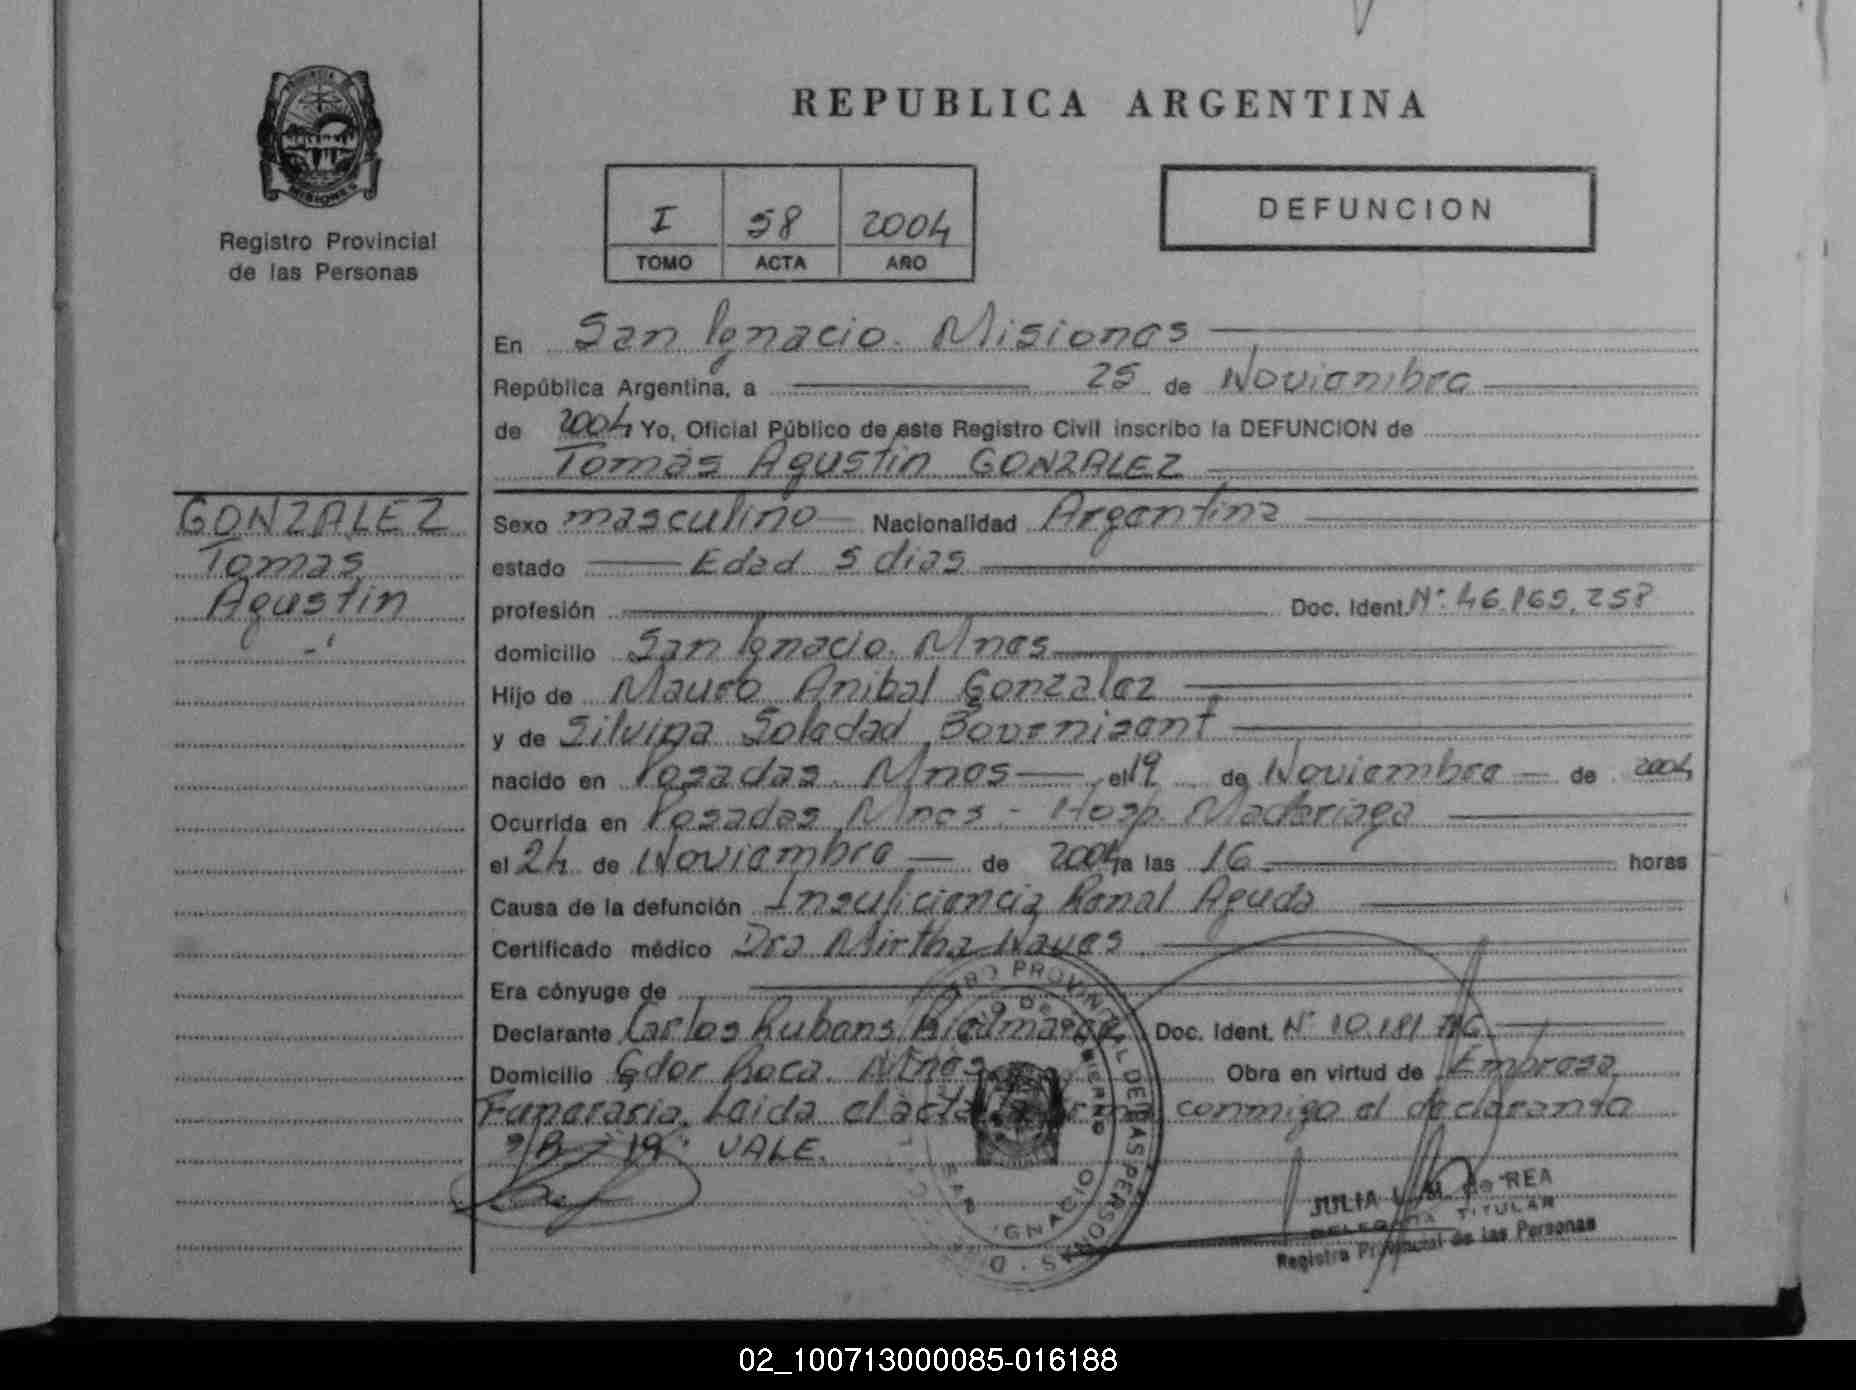 REPUBLICA ARGENTINA
PROVINCIA
MISIONES
Registro Provincial
de las Personas
I 58 2004
TOMO ACTA AÑO
DEFUNCION
En San Ignacio. Misiones
República Argentina, a 25 de Noviembre
de 2004 Yo, Oficial Público de este Registro Civil inscribo la DEFUNCION de
Tomás Agustín GONZALEZ
GONZALEZ
Tomas
Agustín
Sexo masculino Nacionalidad Argentina
estado Edad 5 dias
profesión Doc. Ident. Nº 46.165.258
domicilio San Ignacio. Mnes
Hijo de Mauro Anibal Gonzalez
y de Silvina Soledad
nacido en Posadas. Mnes el 19 de Noviembre de 2004
Ocurrida en Posadas Mnes - Hosp. Madariaga
el 24 de Noviembre de 2004 a las 16 horas
Causa de la defunción Insuficiencia Renal Aguda
Certificado médico Dra Mirtha
Era cónyuge de
Declarante Carlos Rubens Doc. Ident. Nº 10.181
Domicilio Gdor Roca. Mnes Obra en virtud de Empresa
Funeraria. Leida el acta conmigo el declarante
19 VALE.
REGISTRO PROVINCIAL DE LAS PERSONAS
SAN IGNACIO
JULIA de REA
DELEGADA TITULAR
Registro Provincial de las Personas
02_100713000085-016188